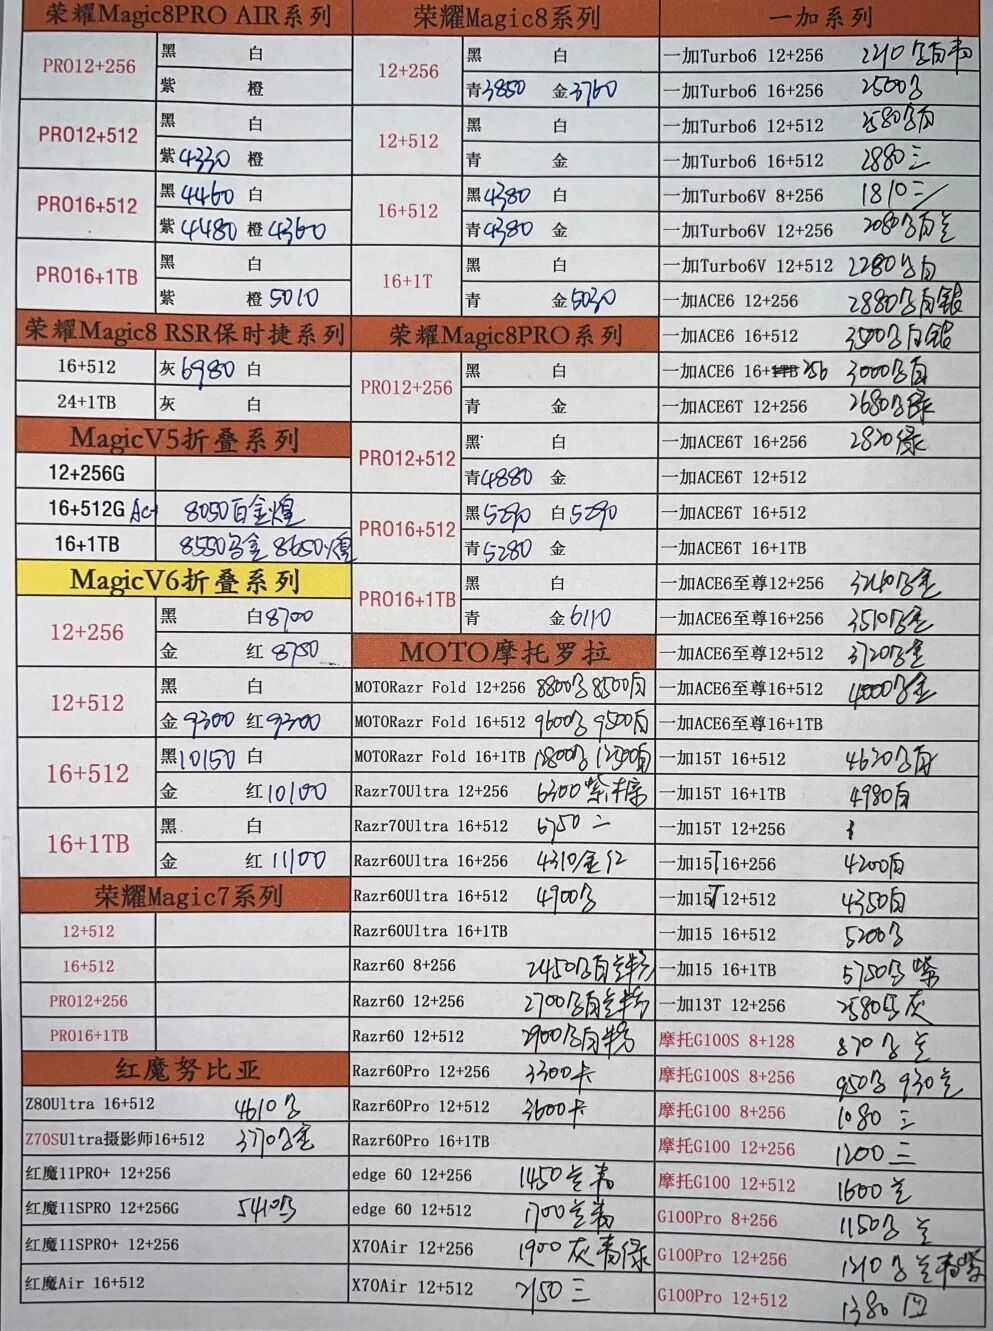 荣耀Magic8PRO AIR系列
PRO12+256 黑 白
紫 橙
PRO12+512 黑 白
紫4330 橙
PRO16+512 黑4460 白
紫4480 橙4360
PRO16+1TB 黑 白
紫 橙5010
荣耀Magic8 RSR保时捷系列
16+512 灰6980 白
24+1TB 灰 白
MagicV5折叠系列
12+256G
16+512G 8050白金煌
16+1TB 8550 金 8650 煌
MagicV6折叠系列
12+256 黑 白8700
金 红8750
12+512 黑 白
金9300 红9300
16+512 黑10150 白
金 红10100
16+1TB 黑 白
金 红11100
荣耀Magic7系列
12+512
16+512
PRO12+256
PRO16+1TB
红魔努比亚
Z80Ultra 16+512 4610
Z70SUltra摄影师16+512 3770 金
红魔11PRO+ 12+256
红魔11SPRO 12+256G 5410
红魔11SPRO+ 12+256
红魔Air 16+512
荣耀Magic8系列
12+256 黑 白
青3850 金3760
12+512 黑 白
青 金
16+512 黑4380 白
青4380 金
16+1T 黑 白
青 金5030
荣耀Magic8PRO系列
PRO12+256 黑 白
青 金
PRO12+512 黑 白
青4880 金
PRO16+512 黑5290 白5290
青5280 金
PRO16+1TB 黑 白
青 金6110
MOTO摩托罗拉
MOTORazr Fold 12+256 8800 8500白
MOTORazr Fold 16+512 9600 9500白
MOTORazr Fold 16+1TB
Razr70Ultra 12+256 6300
Razr70Ultra 16+512 6750 二
Razr60Ultra 16+256 4310金红
Razr60Ultra 16+512 4900
Razr60Ultra 16+1TB
Razr60 8+256 2450
Razr60 12+256 2700
Razr60 12+512 2900
Razr60Pro 12+256 3300卡
Razr60Pro 12+512 3600卡
Razr60Pro 16+1TB
edge 60 12+256 1450兰青
edge 60 12+512 1700兰青
X70Air 12+256 1900灰青绿
X70Air 12+512 2150三
一加系列
一加Turbo6 12+256 青
一加Turbo6 16+256 2500
一加Turbo6 12+512 2580
一加Turbo6 16+512 2880三
一加Turbo6V 8+256 1810三
一加Turbo6V 12+256 2080
一加Turbo6V 12+512 2280
一加ACE6 12+256 2880 白银
一加ACE6 16+512 3500 白银
一加ACE6 16+256 3000 白
一加ACE6T 12+256 2680 绿
一加ACE6T 16+256 2820绿
一加ACE6T 12+512
一加ACE6T 16+512
一加ACE6T 16+1TB
一加ACE6至尊12+256 金
一加ACE6至尊16+256 3510 金
一加ACE6至尊12+512 3720 金
一加ACE6至尊16+512 4000 金
一加ACE6至尊16+1TB
一加15T 16+512 白
一加15T 16+1TB 4980白
一加15T 12+256
一加15T 16+256 4200白
一加15T 12+512 4350白
一加15 16+512 5200
一加15 16+1TB 5750 紫
一加13T 12+256 2580 灰
摩托G100S 8+128 870 兰
摩托G100S 8+256 950 930兰
摩托G100 8+256 1080 三
摩托G100 12+256 1200 三
摩托G100 12+512 1600 兰
G100Pro 8+256 1150 兰
G100Pro 12+256 兰青紫
G100Pro 12+512 1380 四